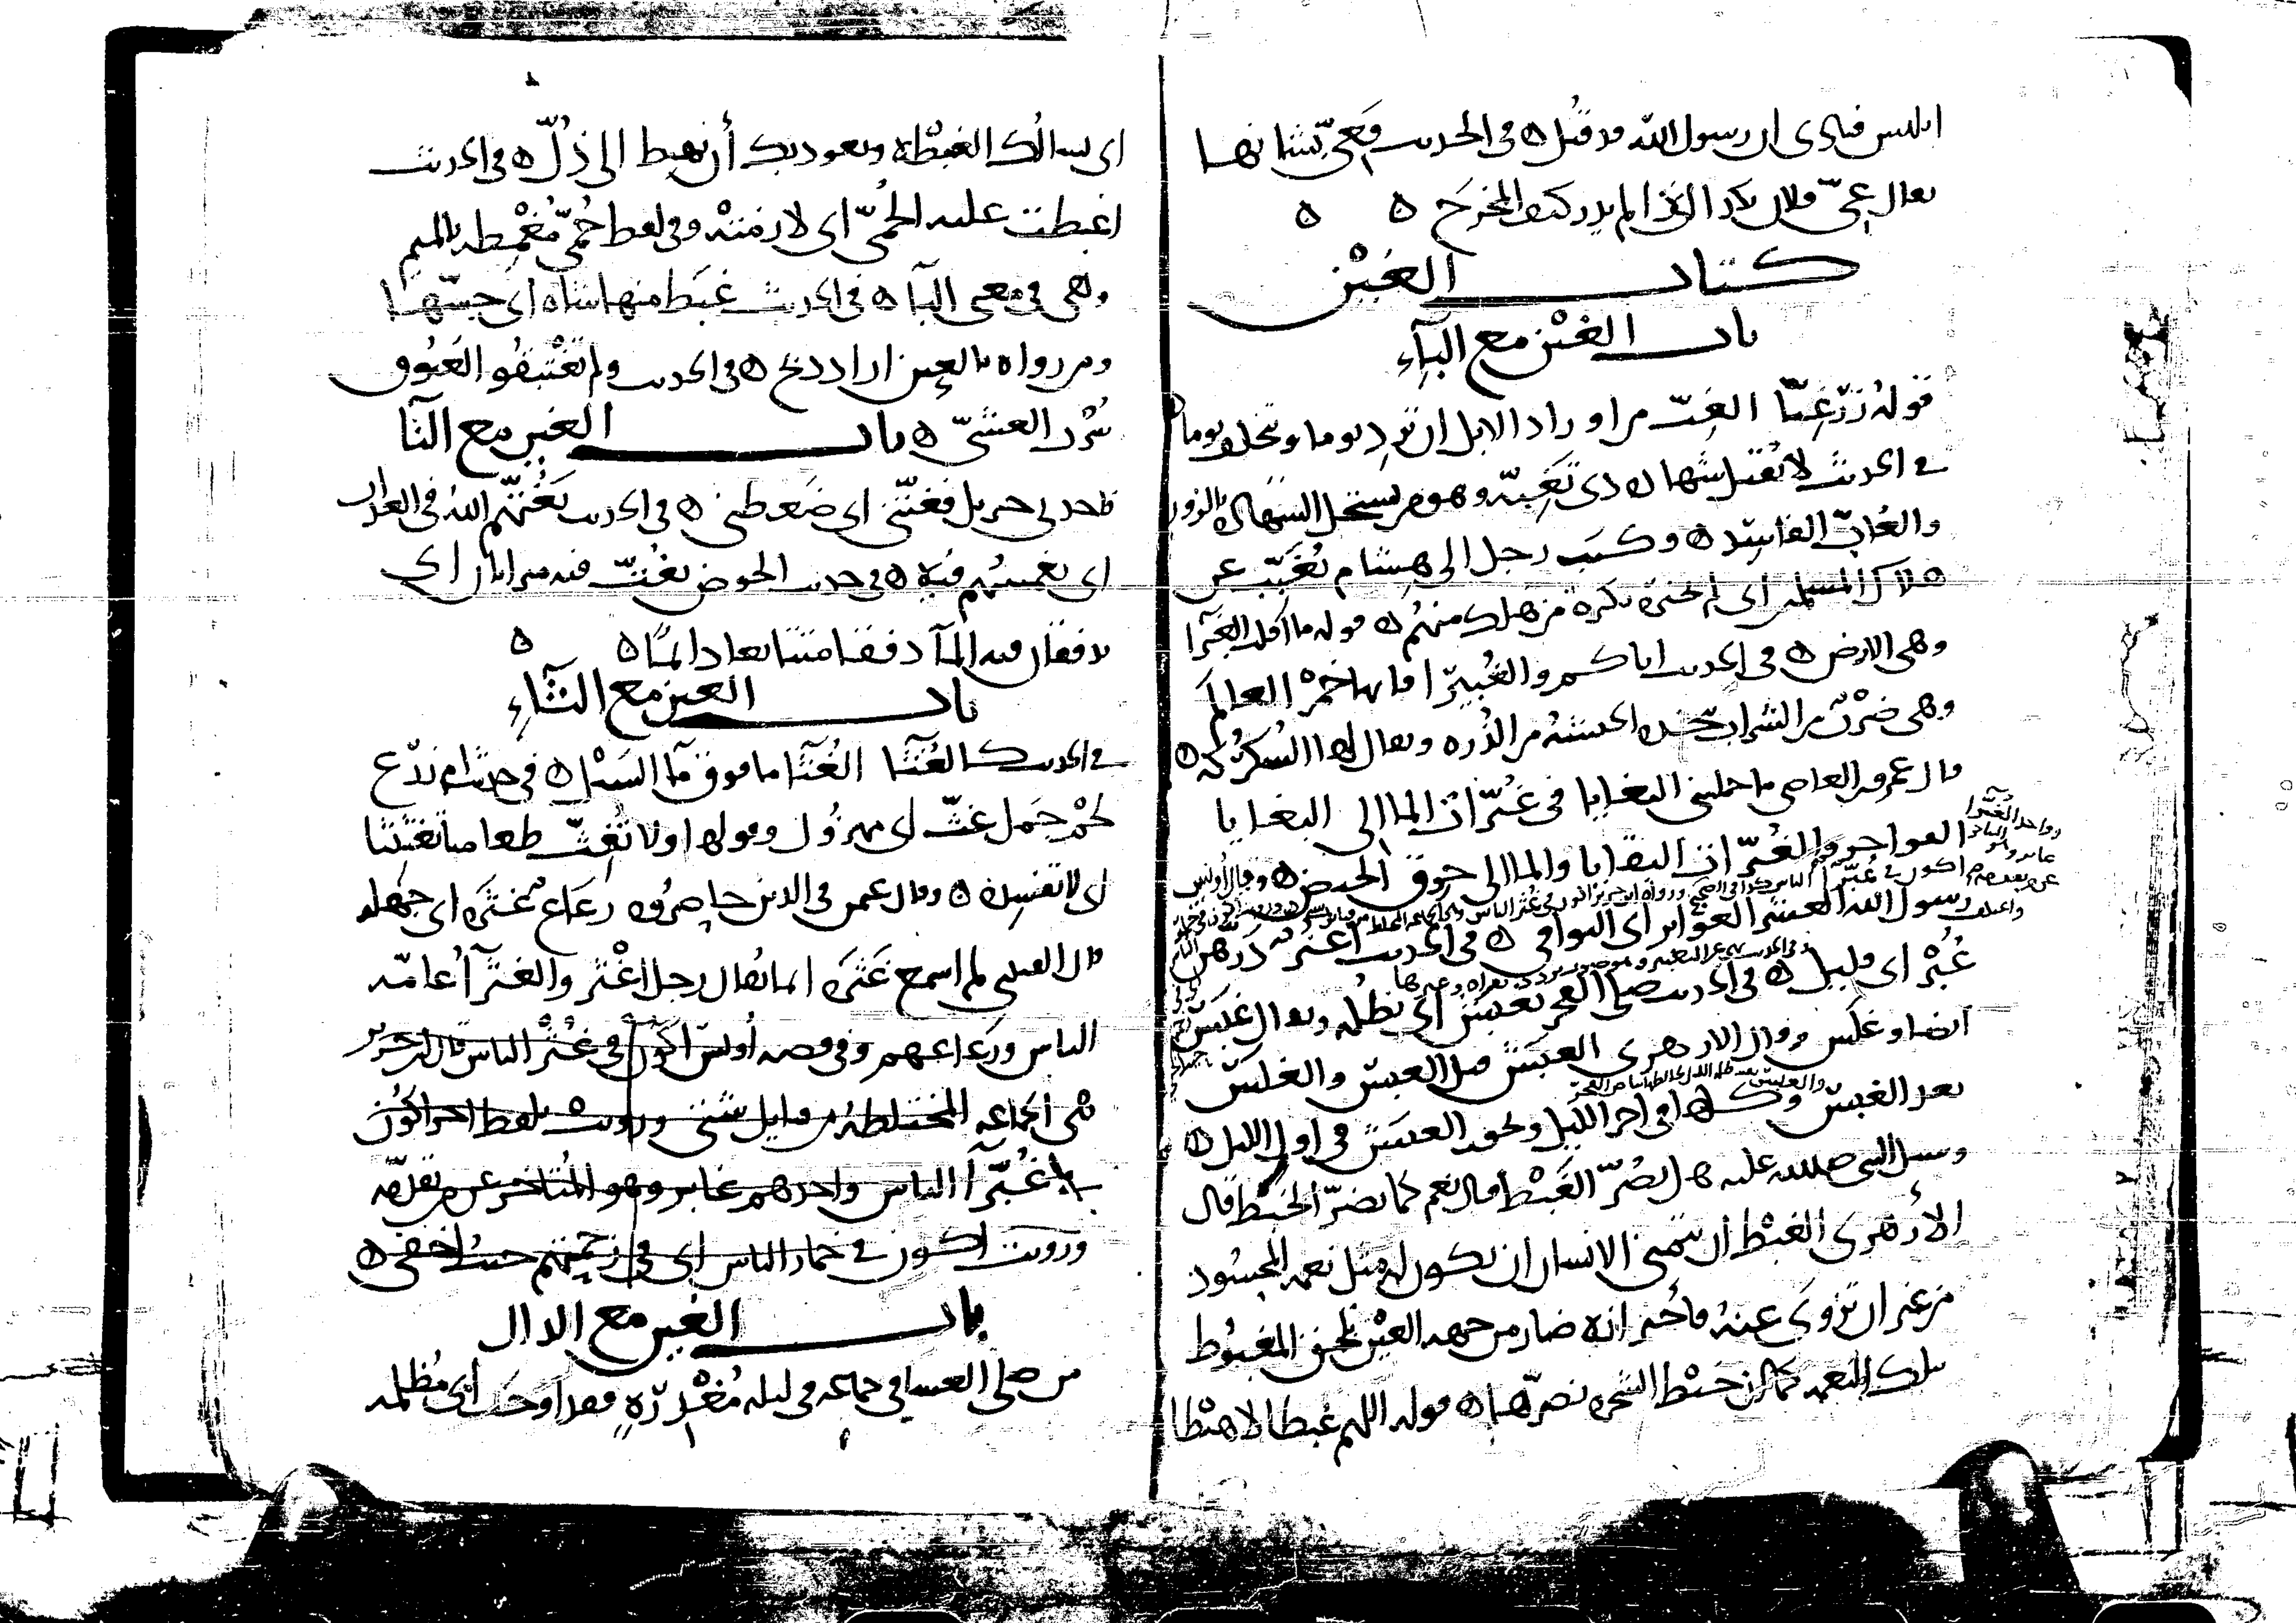 ابليس فنادى ان رسول الله قد قتل ه في الحديث فعيّ بشانها
يقال عيّ فلان بكذا اذا لم يدر كيف المخرج ه ه
كتاب الغين
باب الغين مع الباء
قوله زر غبّا الغبّ من اوراد الابل ان ترد يوما وتخلى يوما ه
في الحديث لا تقبل شهادة ذي تغبّة وهو من يستحل الشهادة بالزور
والغابّ الفاسد ه وكتب رجل الى هشام تغبّب عن
هلاك المسلمين اى لم يخبره بكثرة من هلك منهم ه قوله ما اقلت الغبرا
وهي الارض ه في الحديث اياكم والغبيرا فانها خمر العالم
وهي ضرب من الشراب تتخذه الحبشة من الذرة ويقال لها السكركة ه
قال عمرو بن العاصي ما حملتني البغايا في غبّرات المالي البغايا
الفواجر والغبّرات البقايا والمالي خرق الحيض ه وقال أويس
اكون في غبّر الناس
رسول الله العشر الغوابر اى البواقي ه في الحديث اعنز درهن
غبر اى قليل ه في الحديث صلى الفجر بغبش اى بظلمة ويقال غبش
ايضا وغلس وقال الازهري الغبش قبل الغبس والغلس
بعد الغبس وكلها في اخر الليل ويجوز الغبش في اول الليل ه
وسئل النبي صلى الله عليه هل يضرّ الغبط قال نعم كما يضرّ الخبط قال
الأزهري الغبط أن يتمنى الانسان ان يكون له مثل نعمة المحسود
من غير ان تزوى عنه فأخبر انه ضار من جهة العين تلحق المغبوط
بتلك النعمة كما ان خبط الشجر يضرّ ها ه قوله اللهم غبطا لا هبطا
اى نسالك الغبطة ونعوذ بك أن نهبط الى ذلّ ه في الحديث
اغبطت عليه الحمّى اى لازمته وفي لفظ حمّى مغمطة بالميم
وهي في معنى الباء ه في الحديث غبط منها شاة اى جسّها
ومن رواه بالعين اراد ذبح ه في الحديث ولم تغتبقوا الغبوق
شرب العشيّ ه باب الغين مع التا
فاخذني جبريل فغتّني اى ضغطني ه في الحديث يغتّهم الله في العذاب
اى يغمسهم فيه ه في حديث الحوض يغتّ فيه ميزابان اى
يدفقان فيه الماء دفقا متتابعا دائما ه ه
باب الغين مع الثاء
في الحديث كالغثا الغثآ ما فوق ماء السيل ه في حديث ام زرع
لحم جمل غثّ اى مهزول وقولها ولا تغثّ طعامنا تغثيثا
اى لا تفسده ه وقال عمر في الذين حاصروه رعاع غثرة اى جهلة
قال القتبي لم اسمع غثرة انما يقال رجل اغثر والغثرآ عامّة
الناس ورعاعهم وفي قصه أويس اكون في غثر الناس قال ابن جرير
هي الجماعة المختلطة من قبايل شتى ورويت بلفظ اخر اكون
في غبّرآ الناس واحدهم غابر وهو المتاخر عن من تقدمه
ورويت اكون في خمار الناس اى في زحمتهم حيث اخفى ه
باب الغين مع الدال
من صلى العشا في جماعة في ليلة مغدرة فقد اوجب أي مظلمة